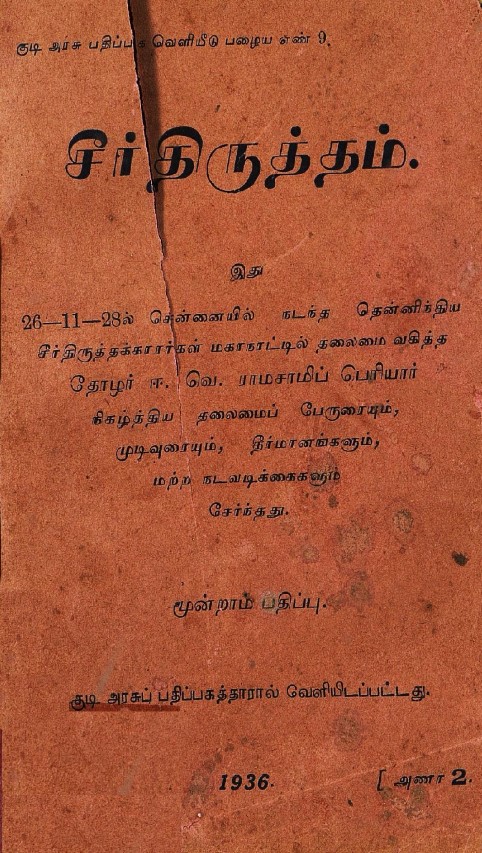 குடி அரசு பதிப்பக வெளியீடு பழைய எண் 9.
சீர்திருத்தம்.
இது
26—11—28ல் சென்னையில் நடந்த தென்னிந்திய
சீர்திருத்தக்காரர்கள் மகாநாட்டில் தலைமை வகித்த
தோழர் ஈ. வெ. ராமசாமிப் பெரியார்
நிகழ்த்திய தலைமைப் பேருரையும்,
முடிவுரையும், தீர்மானங்களும்,
மற்ற நடவடிக்கைகளும்
சேர்ந்தது.
மூன்றாம் பதிப்பு.
குடி அரசுப் பதிப்பகத்தாரால் வெளியிடப்பட்டது.
1936. [ அணா 2.